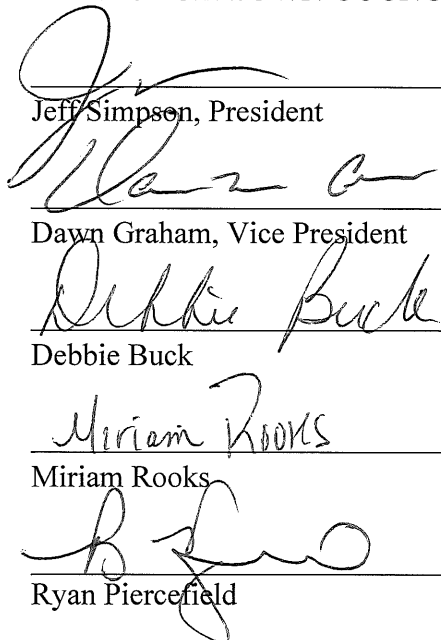 Jeff Simpson, President
Dawn Graham, Vice President
Debbie Buck
Debbie Buck
Miriam Rooks
Miriam Rooks
Ryan Piercefield